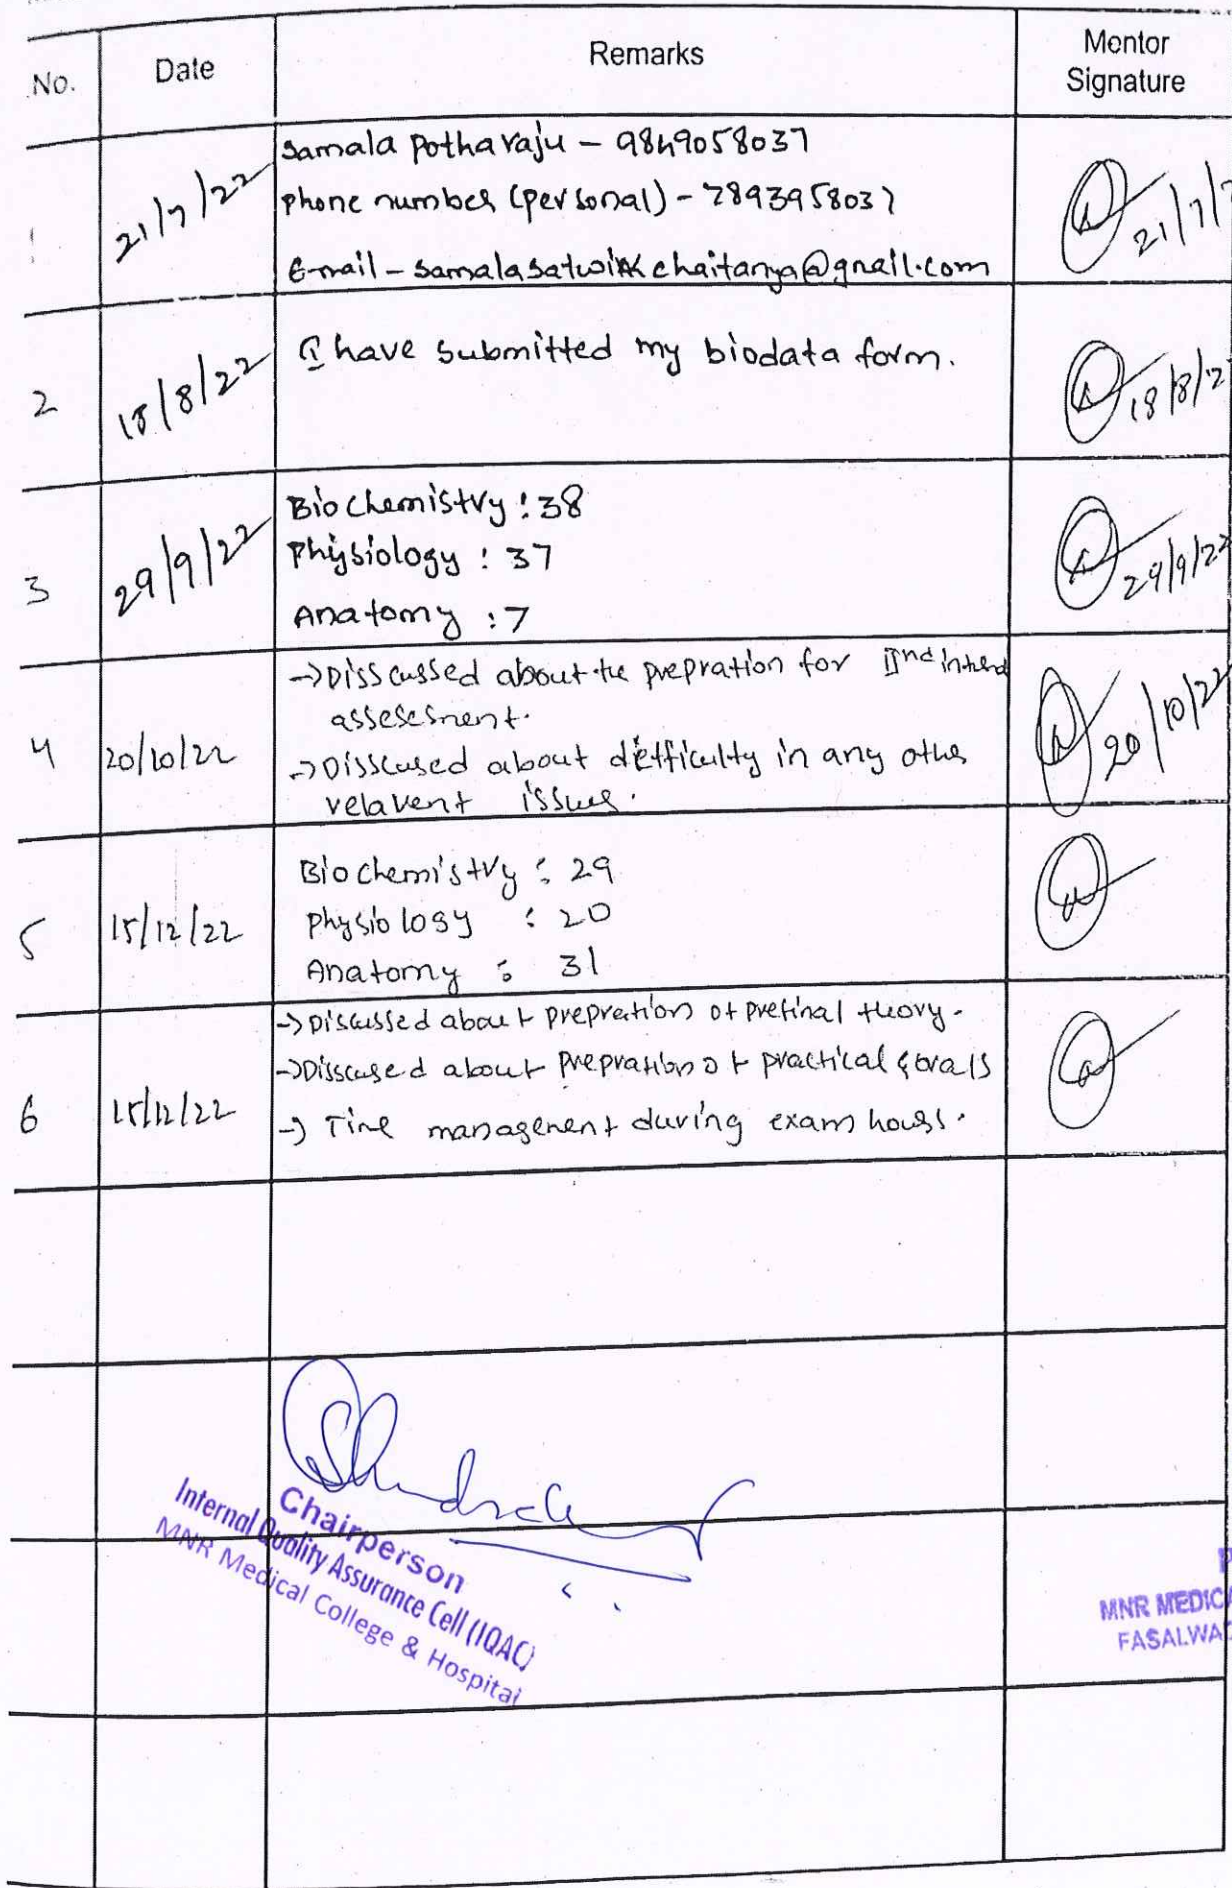 No. Date Remarks Mentor Signature
1 21/7/22 Samala Potharaju - 9849058037
phone number (personal) - 7893958037
E-mail - samalasatwikchaitanya@gmail.com
21/7/
2 18/8/22 I have submitted my biodata form.
18/8/2
3 29/9/22 Biochemistry : 38
Physiology : 37
Anatomy : 7
29/9/22
4 20/10/22 -> Disscussed about the prepration for IInd
assesesment.
-> Disscused about difficulty in any other
relavent issues.
20/10/22
5 15/12/22 Biochemistry : 29
Physiology : 20
Anatomy : 31
6 15/12/22 -> Discussed about prepration of prefinal theory.
-> Disscused about prepration of practical & orals
-> Time management during exam hours.
Chairperson
Internal Quality Assurance Cell (IQAC)
MNR Medical College & Hospital
P
MNR MEDICA
FASALWAD